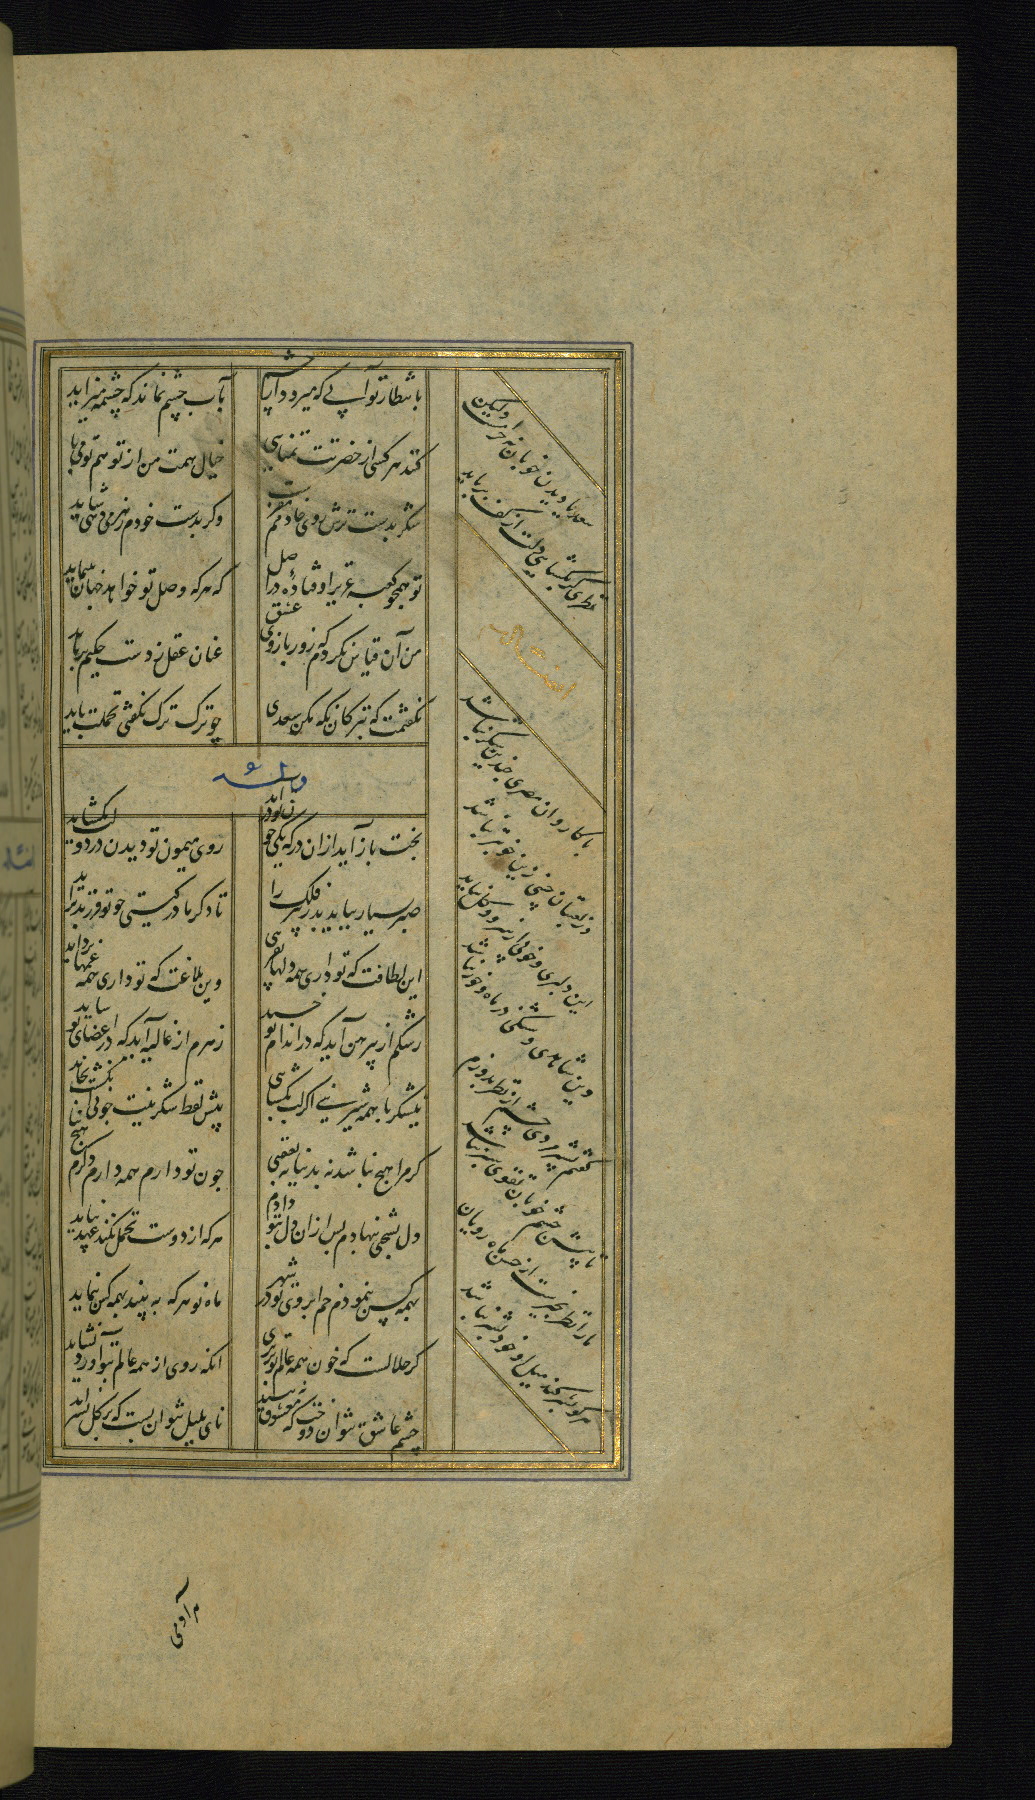 بانتظار تو آبی که میرود از چشم
بآب چشم نماند که چشمه میزاید
کنند هر کسی از حضرتت تمنایی
خیال همت من از تو هم تو می‌باید
شکر بدست ترش روی خادمم مفرست
وگر بدست خودم زهر می‌دهی شاید
تو همچو کعبه عزیز اوفتاده در اصل
که هر که وصل تو خواهد جهان بپیماید
من آن قیاس نکردم که زور بازوی عشق
عنان عقل ز دست حکیم برباید
نگفتمت که بترکان نگه مکن سعدی
چو ترک ترک نگفتی تحملت باید
وله
بخت باز آید از آن در که یکی چون تو درآید
روی میمون تو دیدن در دولت بگشاید
صبر بسیار بباید پدر پیر فلک را
تا دگر مادر گیتی چو تو فرزند بزاید
این لطافت که تو داری همه دلها بفریبی
وین بلاغت که تو داری همه غمها بزداید
رشکم از پیرهن آید که در اندام تو خسبد
زهرم از غالیه آید که در اعضای تو ساید
نیشکر با همه شیرینی اگر لب بگشایی
پیش نطق شکرینت چو نی انگشت بخاید
گر مرا هیچ نباشد نه بدنیا نه بعقبی
چون تو دارم همه دارم دگرم هیچ نباید
دل بسختی بنهادم پس از آن دل بتو دادم
هر که از دوست تحمل نکند عهد نپاید
بهمه کس بنمودم خم ابروی تو در شهر
ماه نو هر که ببیند بهمه کس بنماید
گر حلالست که خون همه عالم تو بریزی
آنکه روی از همه عالم بتو آورد نشاید
چشم عاشق نتوان دوخت که معشوق نبیند
نای بلبل نتوان بست که بر گل نسراید
سعدیا دیدن خوبان نه حرامست ولیکن
نظری گر بگشایی دلت از کف برباید
با کاروان مصری چندین شکر نباشد
در لعبتان چینی زین خوبتر نباشد
این دلبری و خوبی از سرو و گل نیاید
وین شاهدی و شنگی در ماه و خور نباشد
گفتم بشیر مردی چشم از نظر بدوزم
با تیر چشم خوبان تقوی سپر نباشد
ما را نظر بخیرست از حسن ماه رویان
هر کو بشر کند میل او خود بشر نباشد
هر آدمی